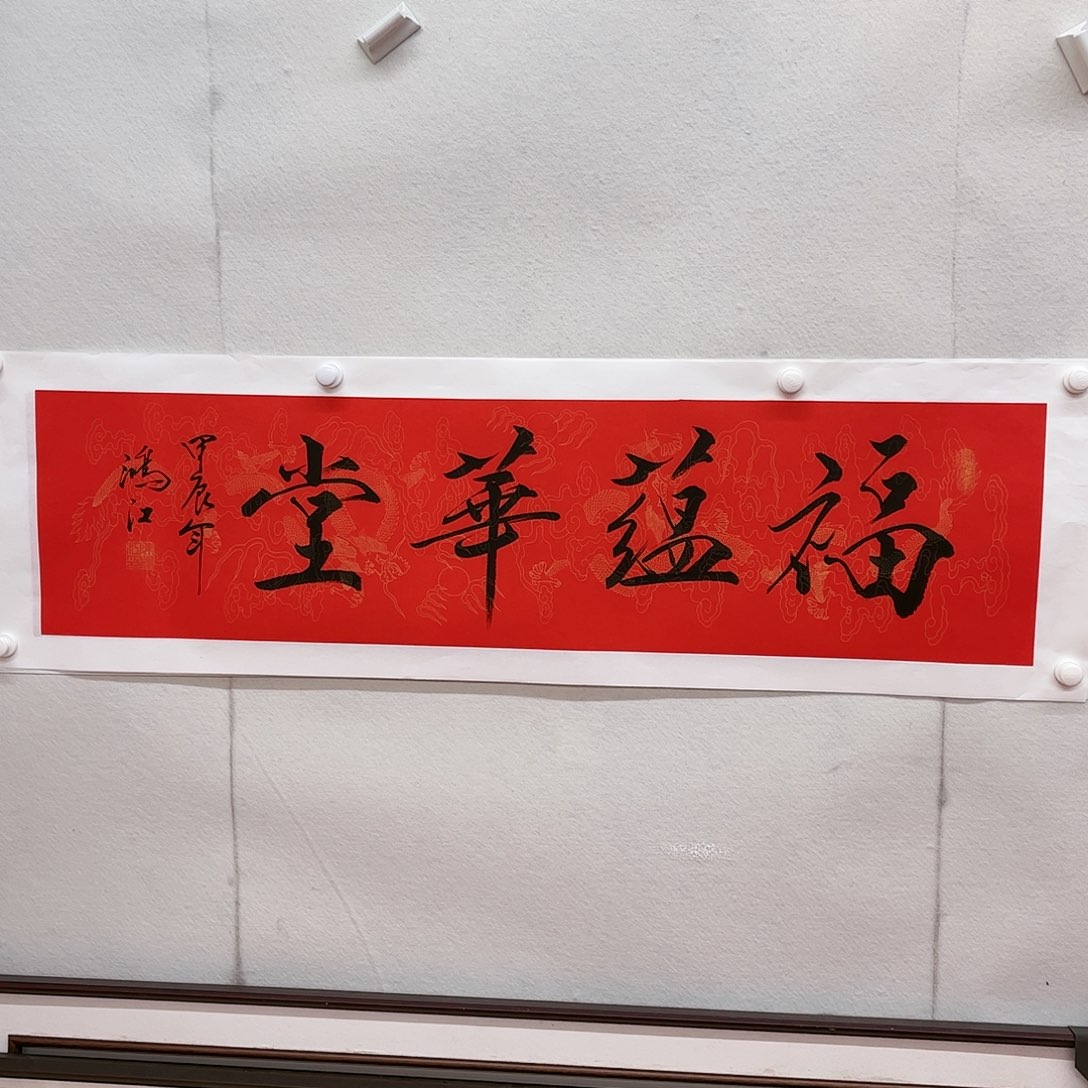 福蕴華堂
甲辰年
鴻江